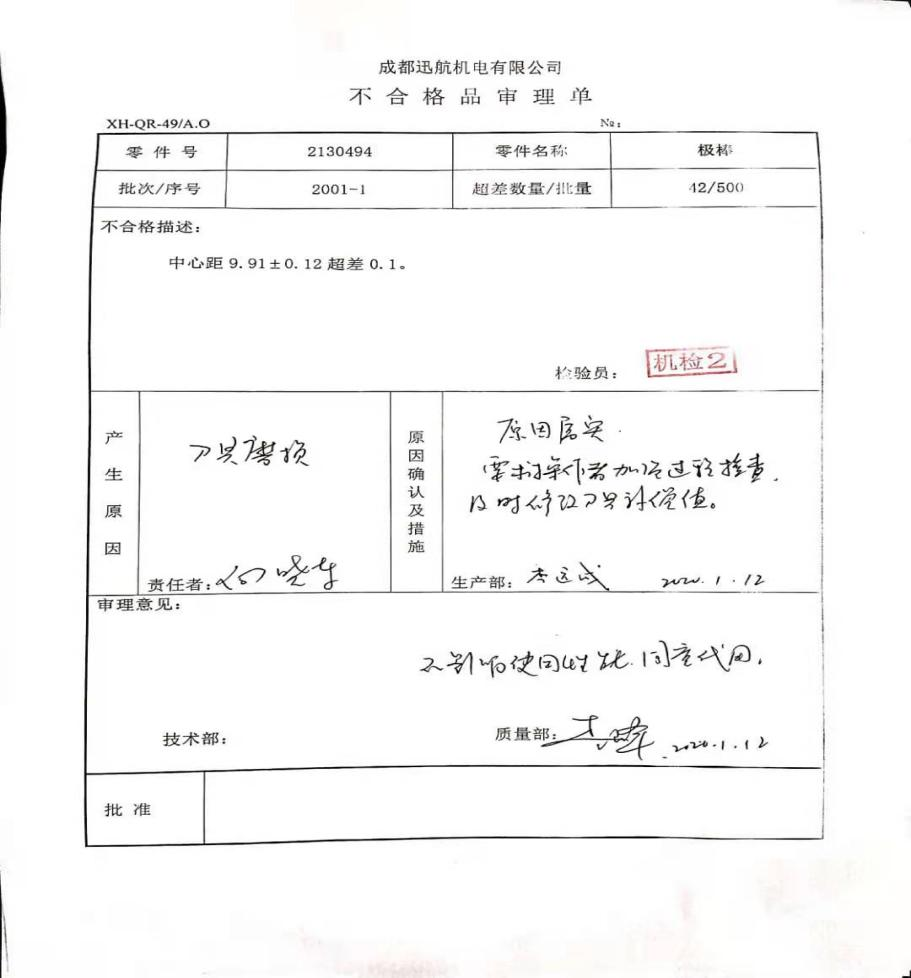 成都迅航机电有限公司
不合格品审理单
XH-QR-49/A.O №:
零件号 2130494 零件名称 极棒
批次/序号 2001-1 超差数量/批量 42/500
不合格描述:
中心距 9.91±0.12 超差 0.1。
检验员: 机检2
产生原因
刀具磨损
责任者:
原因确认及措施
原因属实.
要求操作者加强过程检查,
及时修改刀具补偿值。
生产部: 2020.1.12
审理意见:
不影响使用性能.同意代用.
技术部:
质量部: 2020.1.12
批准